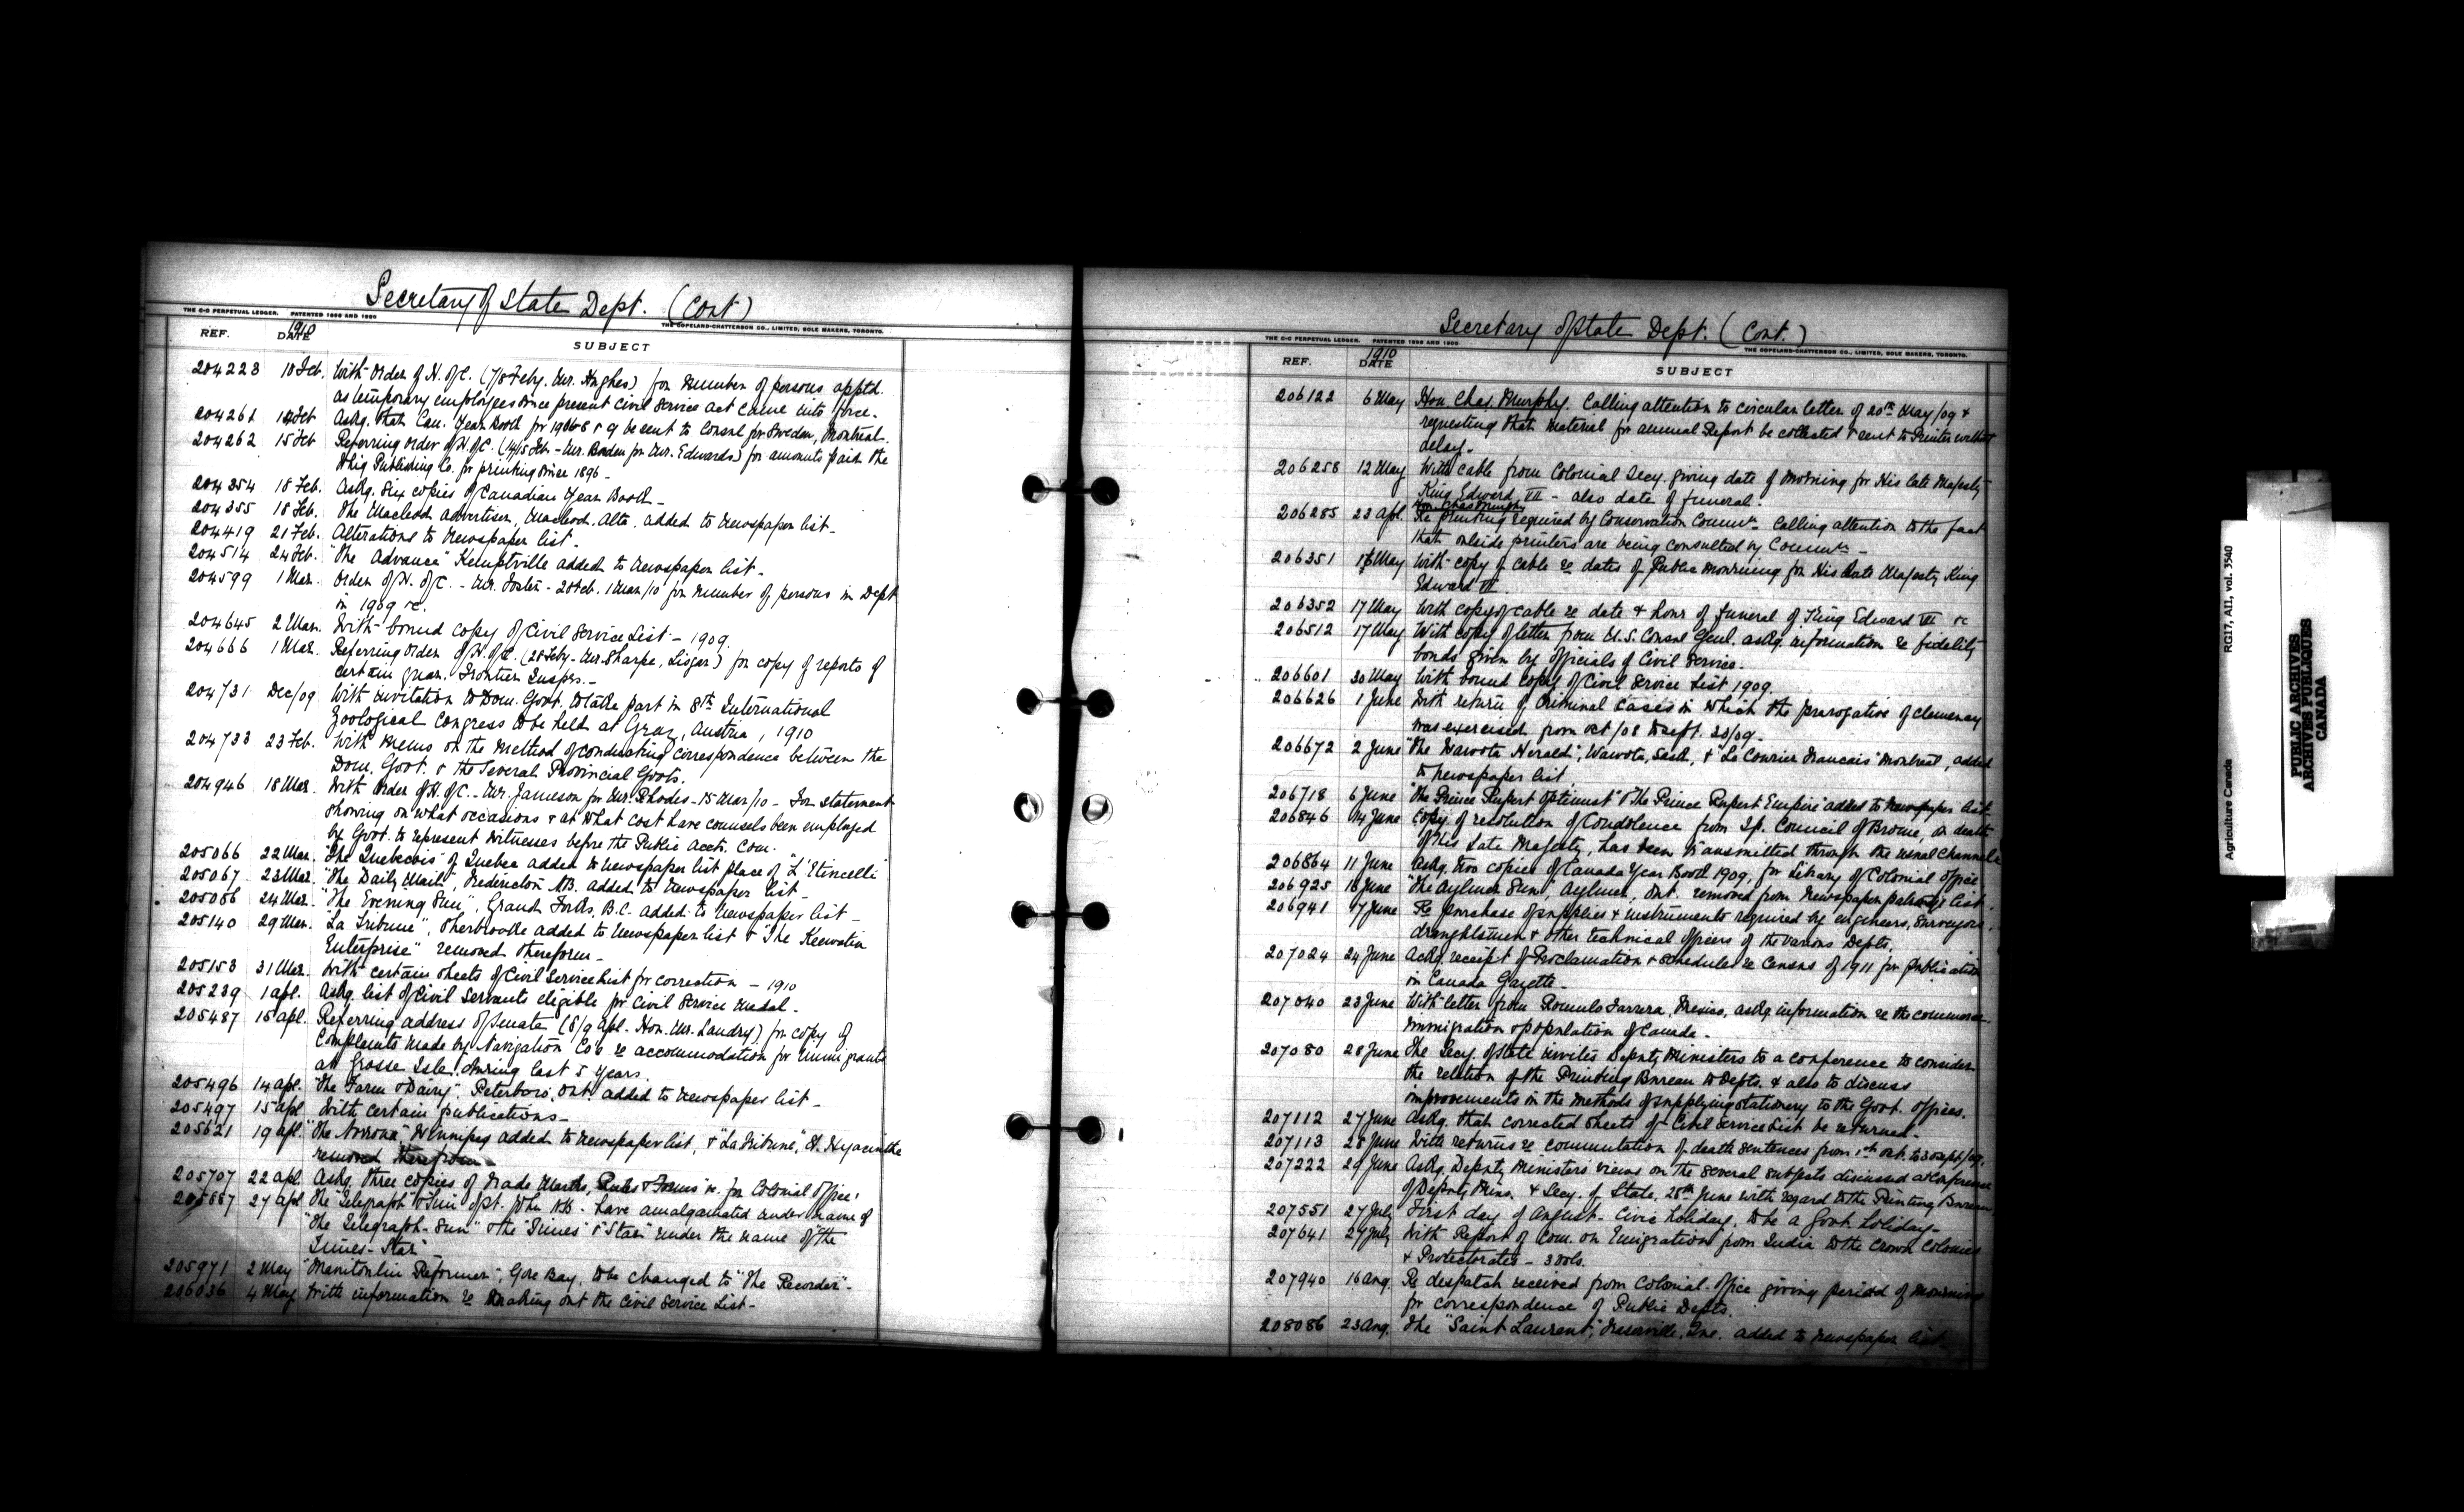 Secretary of State Dept. (Cont)
THE C-C PERPETUAL LEDGER. PATENTED 1898 AND 1900
THE COPELAND-CHATTERSON CO., LIMITED, SOLE MAKERS, TORONTO.
REF. 1910 DATE SUBJECT
204223 10 Feb. With Order of H. of C. (7/8 Feby. Mr. Hughes) for number of persons apptd.
as temporary employees since present Civil Service Act came into force.
204261 14 Feb Askg. that Can. Year Book for 1906-8 & 9 be sent to Consul for Sweden, Montreal.
204262 15 Feb Referring Order of H. of C. (14/15 Feb - Mr. Borden for Mr. Edwards) for amounts paid the
Publishing Co. for printing since 1896 -
204354 18 Feb. Askg. six copies of Canadian Year Book -
204355 18 Feb. The Macleod Advertiser, Macleod, Alta. added to Newspaper list -
204419 21 Feb. Alterations to Newspaper list -
204514 24 Feb. "The Advance" Kemptville added to Newspaper list -
204599 1 Mar. Order of H. of C. - Mr. Foster - 28 Feb. 1 Mar/10 for number of persons in Dept
in 1909 &c.
204645 2 Mar. With bound copy of Civil Service List - 1909.
204666 1 Mar. Referring Order of H. of C. (28 Feby - Mr. Sharpe, Lisgar) for copy of reports of
certain Quar. Frontier Insprs. -
204731 Dec/09 With invitation to Dom. Govt. to take part in 8th International
Zoological Congress to be held at Graz, Austria, 1910
204733 23 Feb. With memo on the method of conducting correspondence between the
Dom. Govt. & the Several Provincial Govts.
204946 18 Mar. With Order of H. of C. - Mr. Jameson for Mr. Rhodes - 15 Mar/10 - For statement
showing on what occasions & at what cost have counsels been employed
by Govt. to represent witnesses before the Public Accts. Com.
205066 22 Mar. "The Quebecois" of Quebec added to newspaper list place of "L'Etincelle"
205067 23 Mar. "The Daily Mail", Fredericton N.B. added to Newspaper list -
205086 24 Mar. "The Evening Sun", Grand Forks, B.C. added to Newspaper list -
205140 29 Mar. "La Tribune", Sherbrooke added to Newspaper list & "The Keewatin
Enterprise" removed therefrom -
205153 31 Mar. With certain sheets of Civil Service List for correction - 1910
205239 1 Apl. Askg. list of Civil Servants eligible for Civil Service medal -
205487 15 Apl. Referring address of Senate (8/9 Apl. Hon. Mr. Landry) for copy of
Complaints made by Navigation Co's re accommodation for Immigrants
at Grosse Isle during last 5 years.
205496 14 Apl. "The Farm & Dairy", Peterboro, Ont. added to Newspaper list -
205497 15 Apl With certain publications -
205621 19 Apl. "The Norrona" Winnipeg added to Newspaper list, & "La Tribune," St. Hyacinthe
removed therefrom
205707 22 Apl. Askg. three copies of Trade Marks, Rules & Forms &c. for Colonial Office.
205887 27 Apl The "Telegraph" & "Sun" of St. John N.B. have amalgamated under name of
"The Telegraph-Sun" & the "Times" & "Star" under the name of "the
Times-Star"
205971 2 May "Manitoulin Reformer", Gore Bay, to be changed to "The Recorder" -
206036 4 May With information re making out the Civil Service List -
Secretary of State Dept. (Cont.)
THE C-C PERPETUAL LEDGER. PATENTED 1898 AND 1900
THE COPELAND-CHATTERSON CO., LIMITED, SOLE MAKERS, TORONTO.
REF. 1910 DATE SUBJECT
206122 6 May Hon. Chas. Murphy. Calling attention to circular letter of 20th May/09 &
requesting that material for annual Report be collected & sent to Printer without
delay -
206258 12 May With cable from Colonial Secy. giving date of mourning for His late Majesty
King Edward VII - also date of funeral.
Hon. Chas Murphy
206285 23 Apl. Re printing required by Conservation Commn. Calling attention to the fact
that outside printers are being consulted by Commn. -
206351 16 May With copy of cable re dates of Public Mourning for His Late Majesty King
Edward VII
206352 17 May With copy of cable re date & hour of funeral of King Edward VII &c
206512 17 May With copy of letter from U.S. Consul Genl. askg. information re fidelity
bonds given by officials of Civil Service -
206601 30 May With bound copy of Civil Service List 1909
206626 1 June With return of Criminal Cases in which the prerogative of clemency
was exercised from Oct/08 to Sept. 30/09 -
206672 2 June "The Wawota Herald", Wawota, Sask, & "Le Courier Francais" Montreal, added
to newspaper list.
206718 6 June "The Prince Rupert Optimist" & "The Prince Rupert Empire" added to Newspaper list
206846 14 June Copy of resolution of Condolence from Tp. Council of Brome, on death
of His Late Majesty, has been transmitted through the usual Channels
206864 11 June Askg. two copies of Canada Year Book 1909, for Library of Colonial Office
206925 18 June "The Aylmer Sun", Aylmer, Ont. removed from newspaper patronage list.
206941 17 June Re purchase of supplies & instruments required by engineers, surveyors,
draughtsmen & other technical officers of the various Depts.
207024 24 June Ackg. receipt of Proclamation & schedules re Census of 1911 for publication
in Canada Gazette -
207040 23 June With letter from Romulo Farrera, Mexico, askg. information re the commerce
immigration & population of Canada -
207080 28 June The Secy. of State invites Deputy Ministers to a conference to consider
the relation of the Printing Bureau to Depts. & also to discuss
improvements in the methods of supplying stationery to the Govt. Offices.
207112 27 June Askg. that corrected sheets of Civil Service List be returned -
207113 28 June With returns re commutation of death sentences from 1st Oct. to 30 Sept/09.
207222 29 June Askg. Deputy Ministers' views on the several subjects discussed at Conference
of Deputy Mins. & Secy. of State, 28th June with regard to the Printing Bureau
207551 27 July First day of August - Civic holiday, to be a Govt. holiday -
207641 29 July With Report of Com. on Emigration from India to the Crown Colonies
& Protectorates - 3 vols.
207940 16 Aug. Re despatch received from Colonial Office giving period of mourning
for correspondence of Public Depts.
208086 23 Aug. The "Saint Laurent", Fraserville, Que. added to newspaper list -
Agriculture Canada RG17, AII, vol. 3540
PUBLIC ARCHIVES
ARCHIVES PUBLIQUES
CANADA